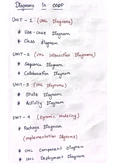 Diagrams in OOPD
UNIT - 1 (UML Diagrams)
* Use-case Diagram
* Class Diagram
UNIT - 2 (UML Interaction Diagrams)
* Sequence Diagram
* Collaboration Diagram
UNIT - 3 (UML Diagrams)
* State Diagram
* Activity Diagram
UNIT - 4 (Dynamic Modeling)
* Package Diagram
(Implementation Diagrams)
* UML Component Diagram
* UML Deployment Diagram